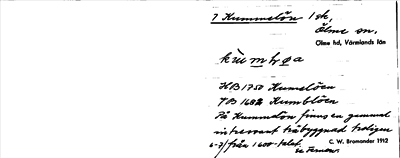 7 Kummelön 1 sk,
Ölme sn,
Ölme hd, Värmlands län
HB 1750 Kumelöen
JB 1682 Kumblöen
På Kummelön finns en gammal
intressant träbyggnad troligen
6-7/ från 1600-talet.
C. W. Bromander 1912